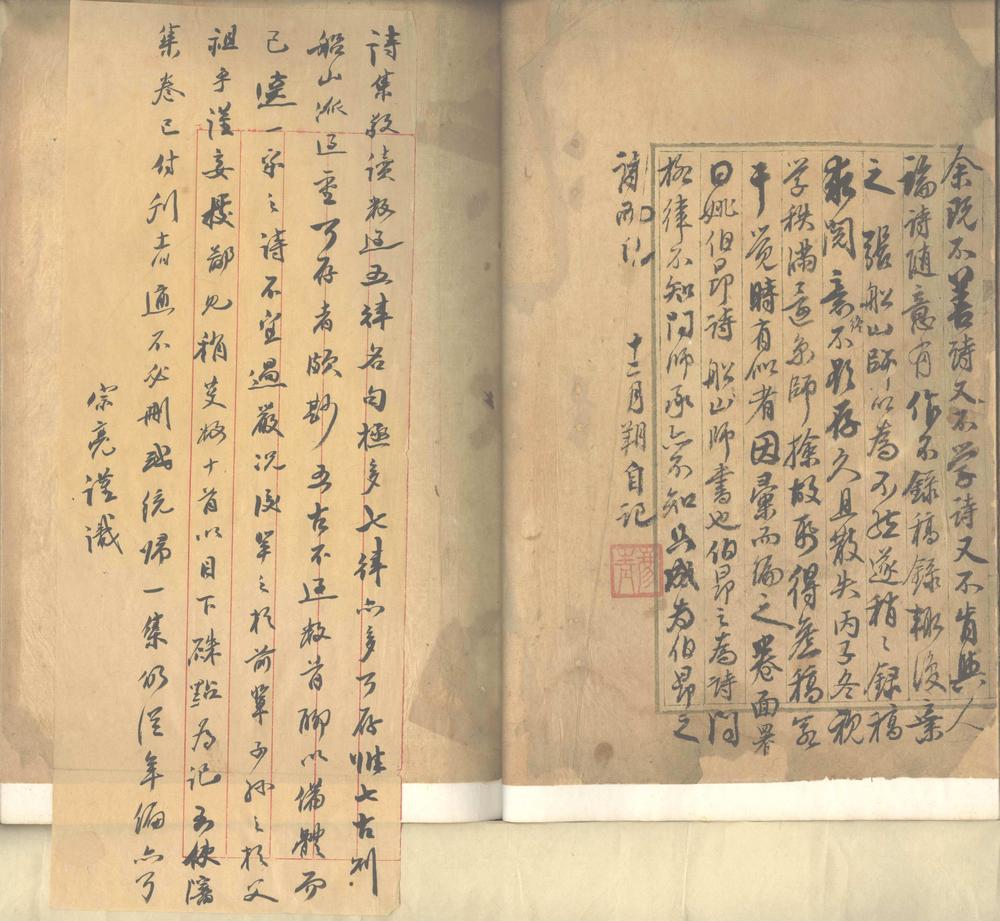 余既不善詩又不學詩又不肯與人
論詩隨意有作不錄稿錄輒復棄
之 張船山師以為不然遂稍々錄稿
求閱意終不欲存久且散失丙子冬視
学秩滿還京師撿故所得舊稿若
干覺時有似者因彙而編之卷面署
曰姚伯昂詩船山師書也伯昂之為詩問
格律不知問師承亦不知只成為伯昂之
詩而已 十二月朔自記
詩集敬讀數過五律名句極多七律亦多可存惟七古則
船山派過重可存者頗尠五古不過數首聊以備體而
已選一家之詩不宜過嚴況後輩之於前輩子孫之於父
祖乎謹妄攄鄙見稍芟數十首以目下硃點為記至使瀋
集卷已付刊者適不必刪,統歸一集仍從年編亦可
宗亮謹識